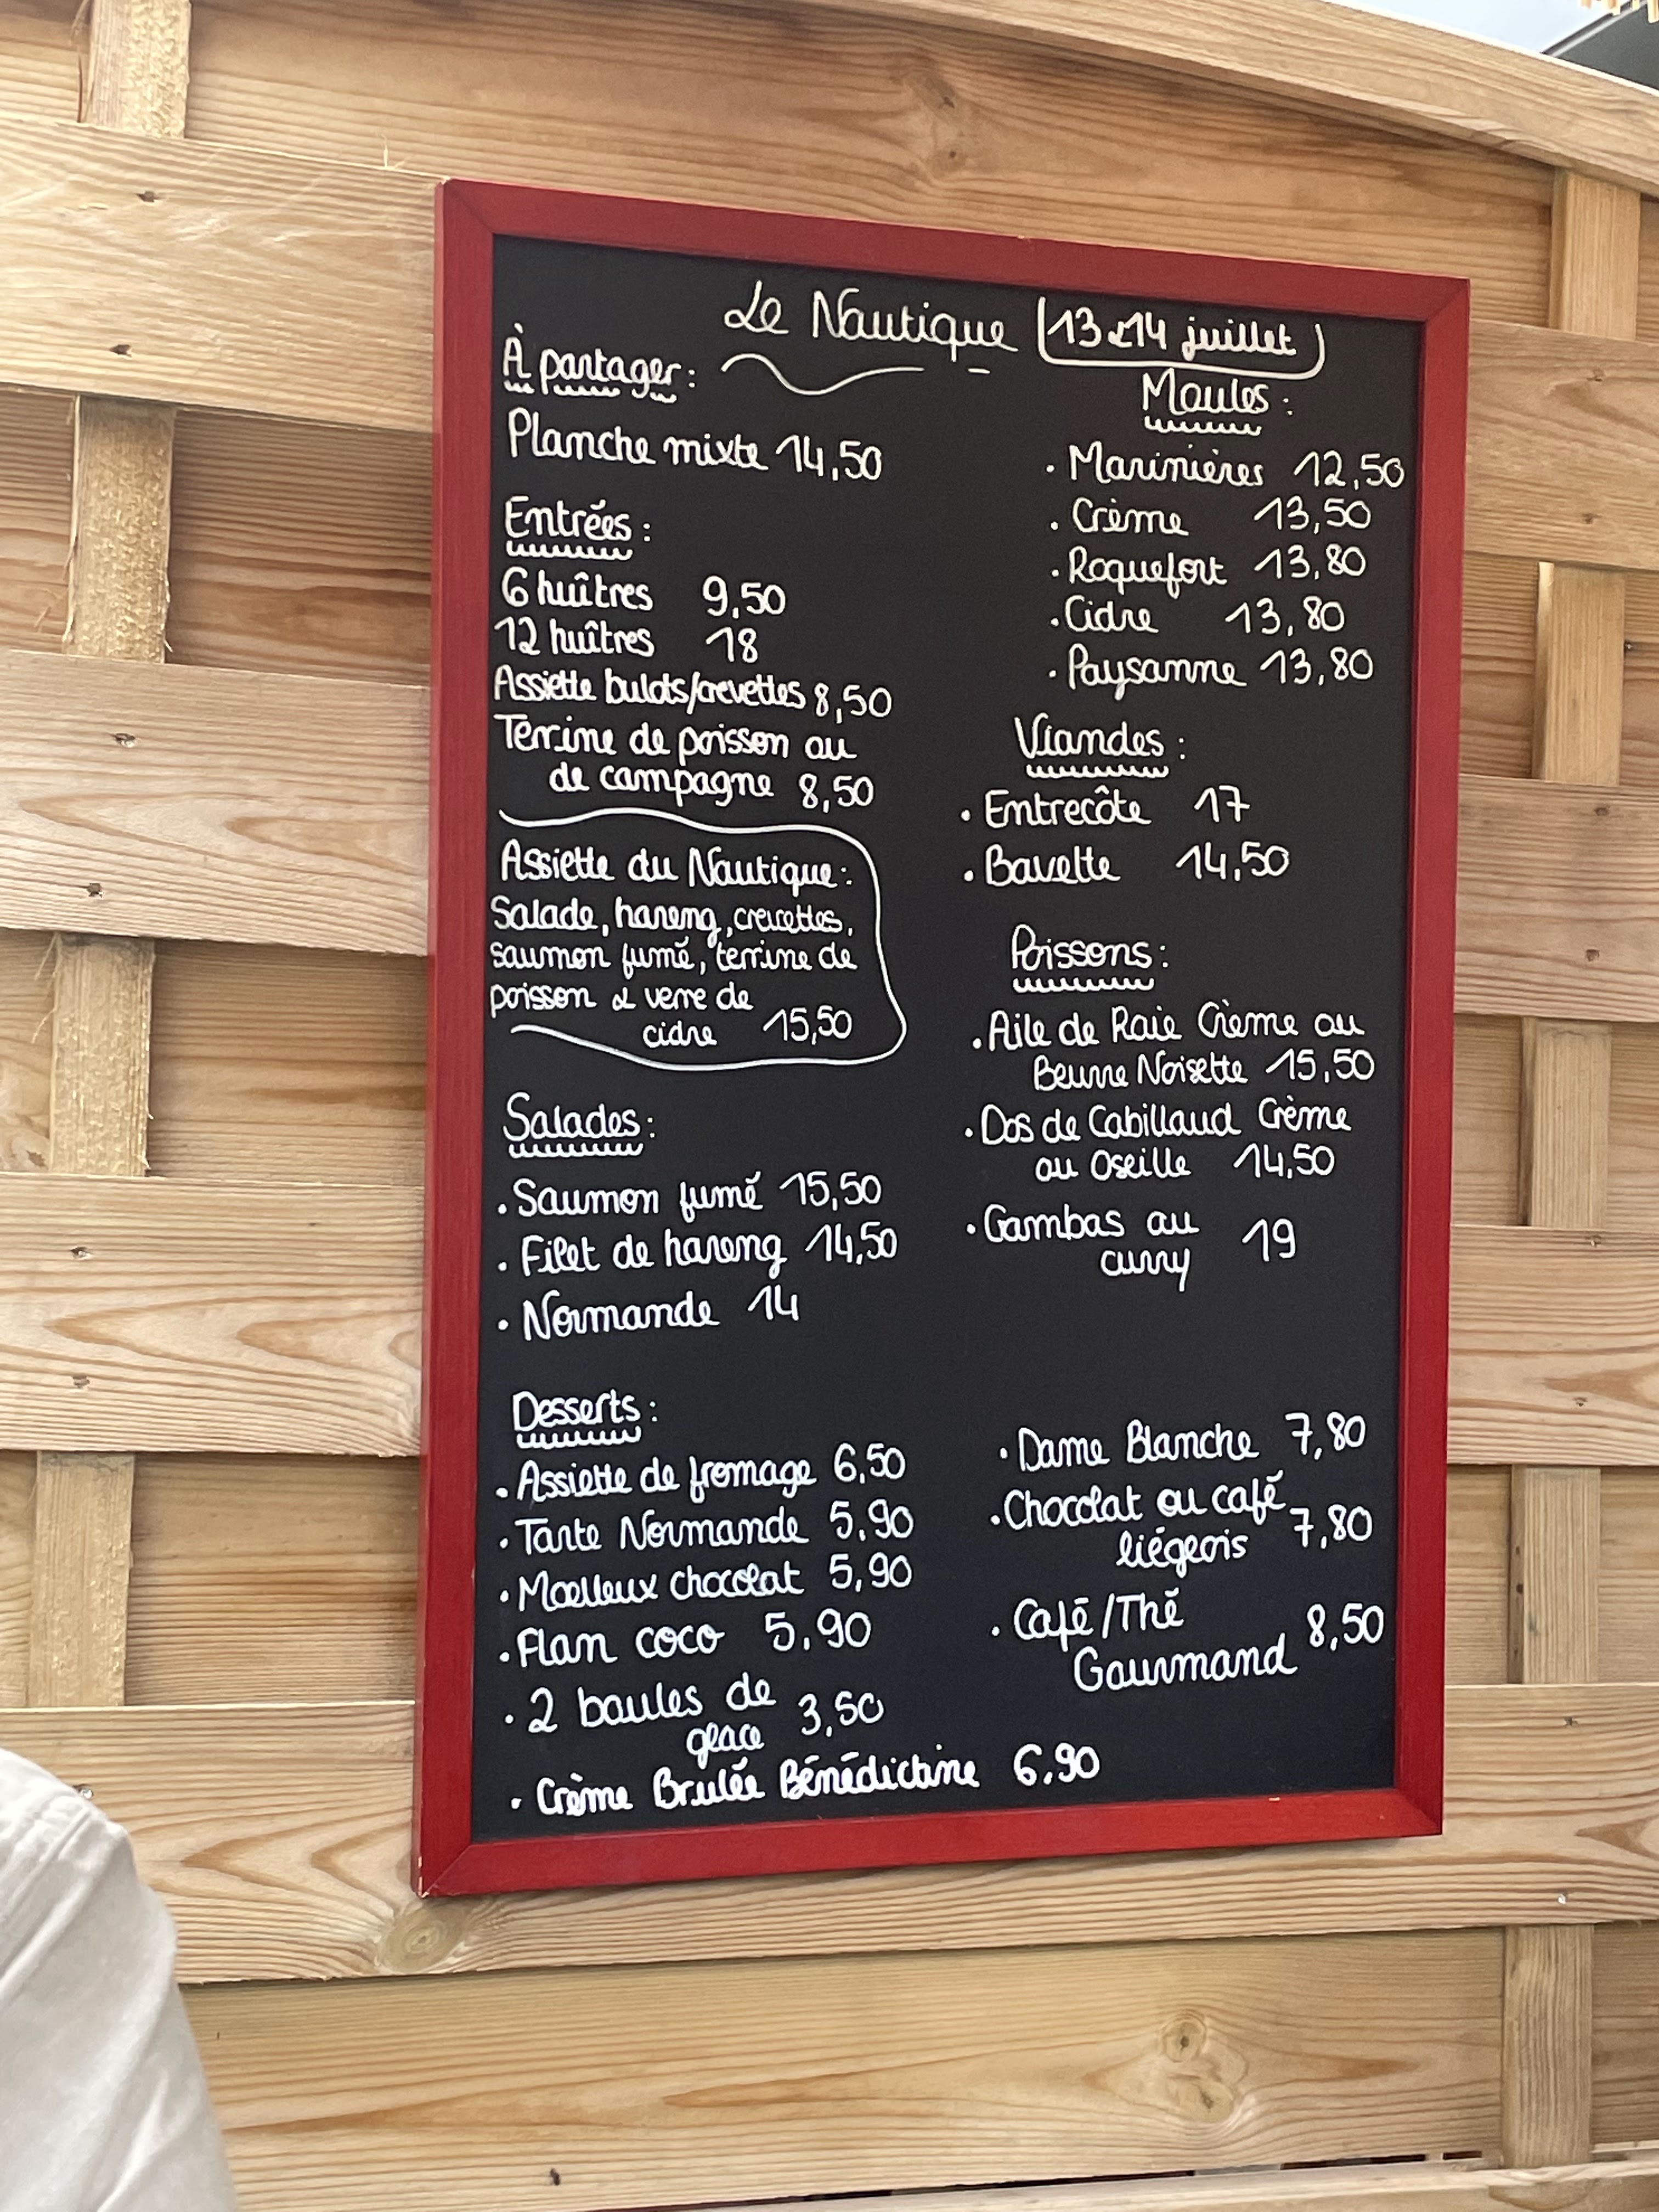 Le Nautique (13 et 14 juillet)
À partager :
Planche mixte 14,50
Entrées :
6 huîtres 9,50
12 huîtres 18
Assiette bulots/crevettes 8,50
Terrine de poisson ou
de campagne 8,50
Assiette du Nautique :
Salade, hareng, crevettes,
saumon fumé, terrine de
poisson & verre de
cidre 15,50
Salades :
. Saumon fumé 15,50
. Filet de hareng 14,50
. Normande 14
Moules :
. Marinières 12,50
. Crème 13,50
. Roquefort 13,80
. Cidre 13,80
. Paysanne 13,80
Viandes :
. Entrecôte 17
. Bavette 14,50
Poissons :
. Aile de Raie Crème ou
Beurre Noisette 15,50
. Dos de Cabillaud Crème
ou Oseille 14,50
. Gambas au
curry 19
Desserts :
. Assiette de fromage 6,50
. Tarte Normande 5,90
. Moelleux chocolat 5,90
. Flan coco 5,90
. 2 boules de
glace 3,50
. Crème Brulée Bénédictine 6,90
. Dame Blanche 7,80
. Chocolat ou café
liégeois 7,80
. Café/Thé
Gourmand 8,50